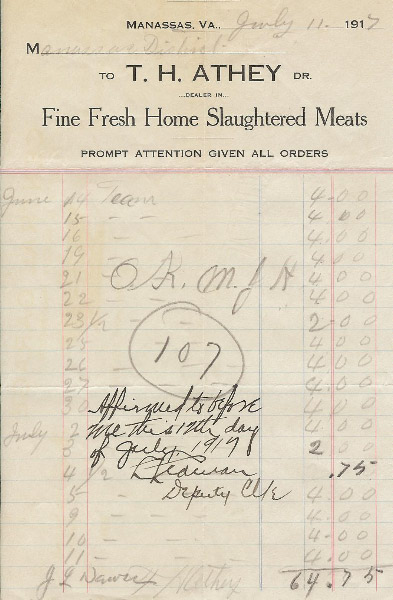 MANASSAS, VA., July 11 - 1917
Manassas District
TO T. H. ATHEY DR.
...DEALER IN...
Fine Fresh Home Slaughtered Meats
PROMPT ATTENTION GIVEN ALL ORDERS
June 14 Team 4.00
15 — — 4.00
16 — — 4.00
19 — — 4.00
21 — — 4.00
O.K. M.J.H
22 — — 4.00
23 1/2 — — 2.00
25 — — 4.00
107
26 — — 4.00
27 4.00
30 4.00
Affirmed to before
July 2 4.00
me this 12th day
3 2.00
of July, 1917
4 1/2 .75
Deputy Clk
5 4.00
9 4.00
10 4.00
11 4.00
64.75